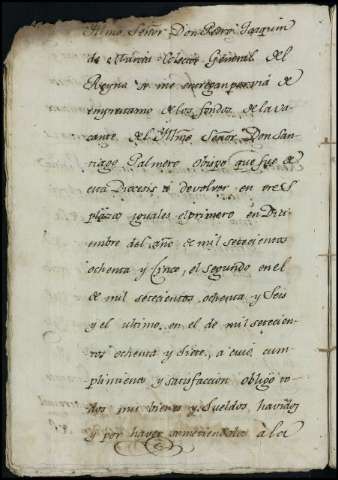 Illmo. Señor Don Pedro Joaquin
de Murcia Colector General del
Reyno se me entregan por via de
emprestamo de los fondos de la va
cante del Yllmo. Señor Don San
tiago Palmero Obispo que fue de
esta Diocesis à devolver en tres
plazos iguales el primero en Dici
embre del año de mil setecientos
ochenta y Cinco, el segundo en el
de mil setecientos ochenta y Seis
y el ultimo en el de mil setecien
tos ochenta y siete, a cuio cum
plimiento y satisfaccion obligo to
dos mis bienes y Sueldos, havidos
y por haver sometiendolos à las